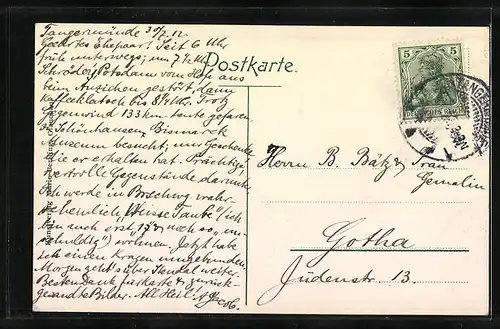 Tangermünde 30/7.12.
Geehrtes Ehepaar! Seit 6 Uhr
früh unterwegs, um 7 1/2 Uhr
Schröder, Potsdam vom Hofe aus
beim Anziehen gestört, dann
Kaffeeklatsch bis 8 1/4 Uhr. Trotz
Gegenwind 133 km heute gefahren.
In Schönhausen Bismarck
Museum besucht, nur Geschenke
die er erhalten hat. Prächtige,
wertvolle Gegenstände darunter.
Ich werde in Brschwg wahr-
scheinlich „Weisse Taube“ (ich
bin auch erst 17 & noch so „un-
schuldig“) wohnen. Jetzt habe
ich einen Kragen umgebunden.
Morgen geht's über Stendal weiter.
Besten Dank für Karte & zurück-
gesandte Bilder. All Heil!
Postkarte.
5 5
DEUTSCHES REICH
TANGERMÜNDE
Herrn B. Bätz & Frau
Gemalin
Gotha
Jüdenstr. 13.